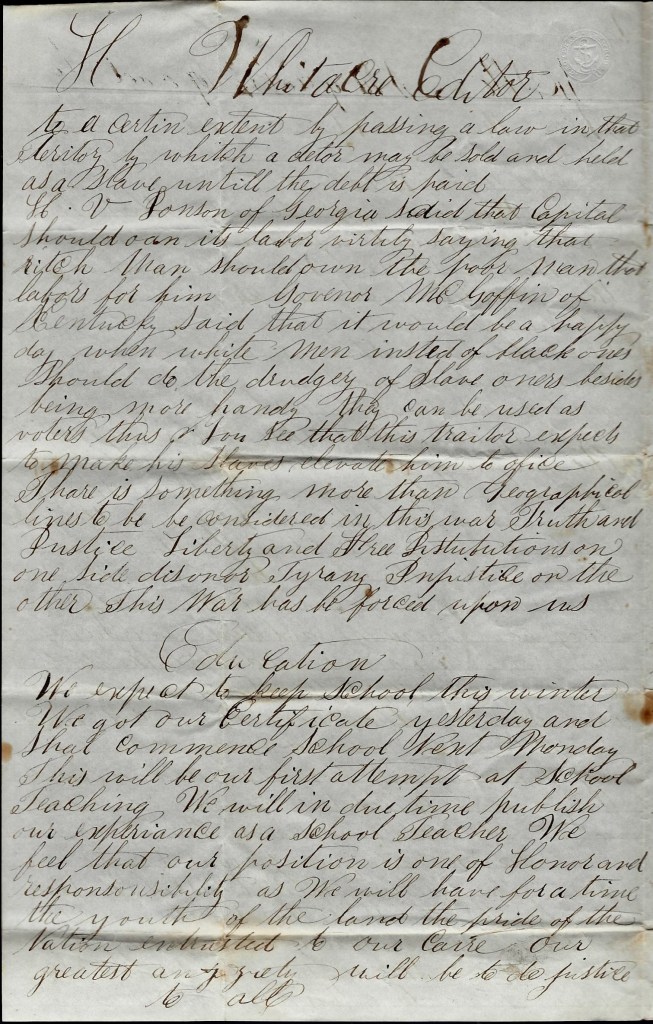 H Whitacre Editor
to a certin extent by passing a law in that
teritory by whitch a detor may be sold and held
as a Slave untill the debt is paid
H. V Jonson of Georgia said that Capital
should oan its labor virtily saying that
ritch Man should own the poor Man that
labors for him Govenor McGoffin of
Kentucky said that it would be a happy
day when white Men insted of black ones
Should do the drudgery of Slave oners besides
being more handy they can be used as
voters thus You See that this traitor expects
to make his Slaves elevate him to ofice
Thare is something more than Geographical
lines to be be considered in this war Truth and
Justice Liberty and Free Institutions on
one side disonor Tyrany Injustice on the
other This War has be forced upon us
Education
We expect to keep School this winter
We got our Certificate yesterday and
Shal commence School Next Monday
This will be our first attempt at School
Teaching We will in due time publish
our experiance as a School Teacher We
feel that our position is one of Honor and
responsousibility as We will have for a time
the youth of the land the pride of the
Nation entrusted to our Carre Our
greatest anxziety will be to do justice
to all